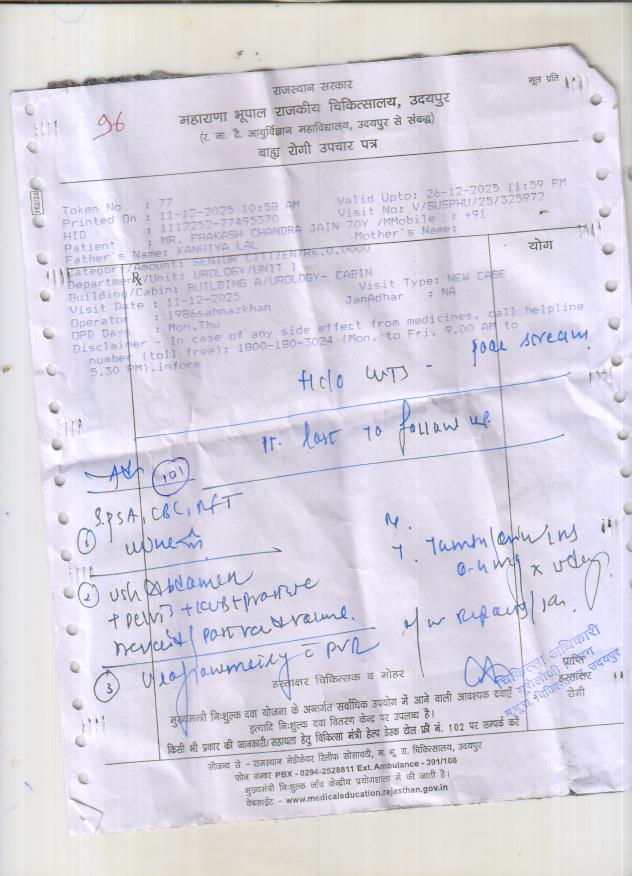 राजस्थान सरकार
मूल प्रति
96
महाराणा भूपाल राजकीय चिकित्सालय, उदयपुर
(र. ना. टै. आयुर्विज्ञान महाविद्यालय, उदयपुर से संबद्ध)
बाह्य रोगी उपचार पत्र
162/24
Token No. : 77
Printed On : 11-12-2025 10:58 AM Valid Upto: 26-12-2025 11:59 PM
HID : 1112252-77495370 Visit No: V/SUSPHU/25/325972
Patient : MR. PRAKASH CHANDRA JAIN 70Y /M Mobile : +91
Father's Name: KANHIYA LAL Mother's Name:
Category/Amount: SENIOR CITIZEN/Rs.0.0000
योग
Rx
Department/Unit: UROLOGY/UNIT 1
Building/Cabin: BUILDING A/UROLOGY- CABIN
Visit Date : 11-12-2025 Visit Type: NEW CASE
Operator : 1986sahnazkhan JanAdhar : NA
OPD Days : Mon,Thu
Disclaimer - In case of any side effect from medicines, call helpline
number (toll free): 1800-180-3024 (Mon. to Fri. 9.00 AM to
5.30 PM).inform
H/o LUTS - poor stream
Pt. lost to follow up
101
S.PSA, CBC, RFT
① urine
② USG Abdomen
+ pelvis + KUB + prostate
③ Uroflowmetry c̄ PVR
हस्ताक्षर चिकित्सक व मोहर
चिकित्सा अधिकारी
प्राप्ति
हस्ताक्षर
रोगी
मुख्यमंत्री निःशुल्क दवा योजना के अन्तर्गत सर्वाधिक उपयोग में आने वाली आवश्यक दवाएँ
इत्यादि निःशुल्क दवा वितरण केन्द्र पर उपलब्ध है।
किसी भी प्रकार की जानकारी/सहायता हेतु चिकित्सा मंत्री हेल्प डेस्क टोल फ्री नं. 102 पर सम्पर्क करें
सौजन्य से - राजस्थान मेडीकेयर रिलीफ सोसायटी, म. भू. रा. चिकित्सालय, उदयपुर
फोन नम्बर PBX - 0294-2528811 Ext. Ambulance - 391/108
मुख्यमंत्री निःशुल्क जाँच केन्द्रीय प्रयोगशाला में की जाती है।
वेबसाईट - www.medicaleducation.rajasthan.gov.in